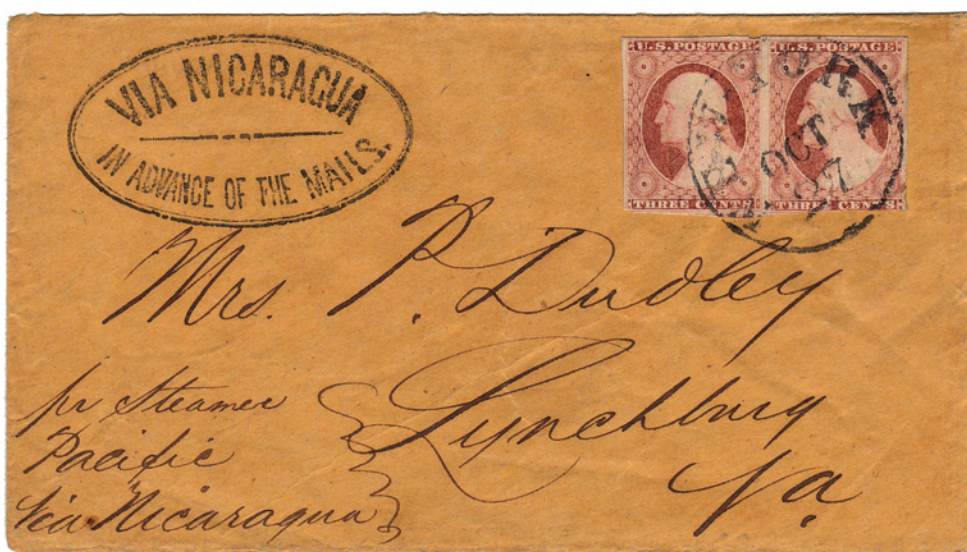 VIA NICARAGUA
IN ADVANCE OF THE MAILS.
U.S. POSTAGE
THREE CENTS
U.S. POSTAGE
THREE CENTS
NEW YORK
OCT
27
Mrs. P. Dudley
Lynchburg
Va.
pr Steamer
Pacific
Via Nicaragua